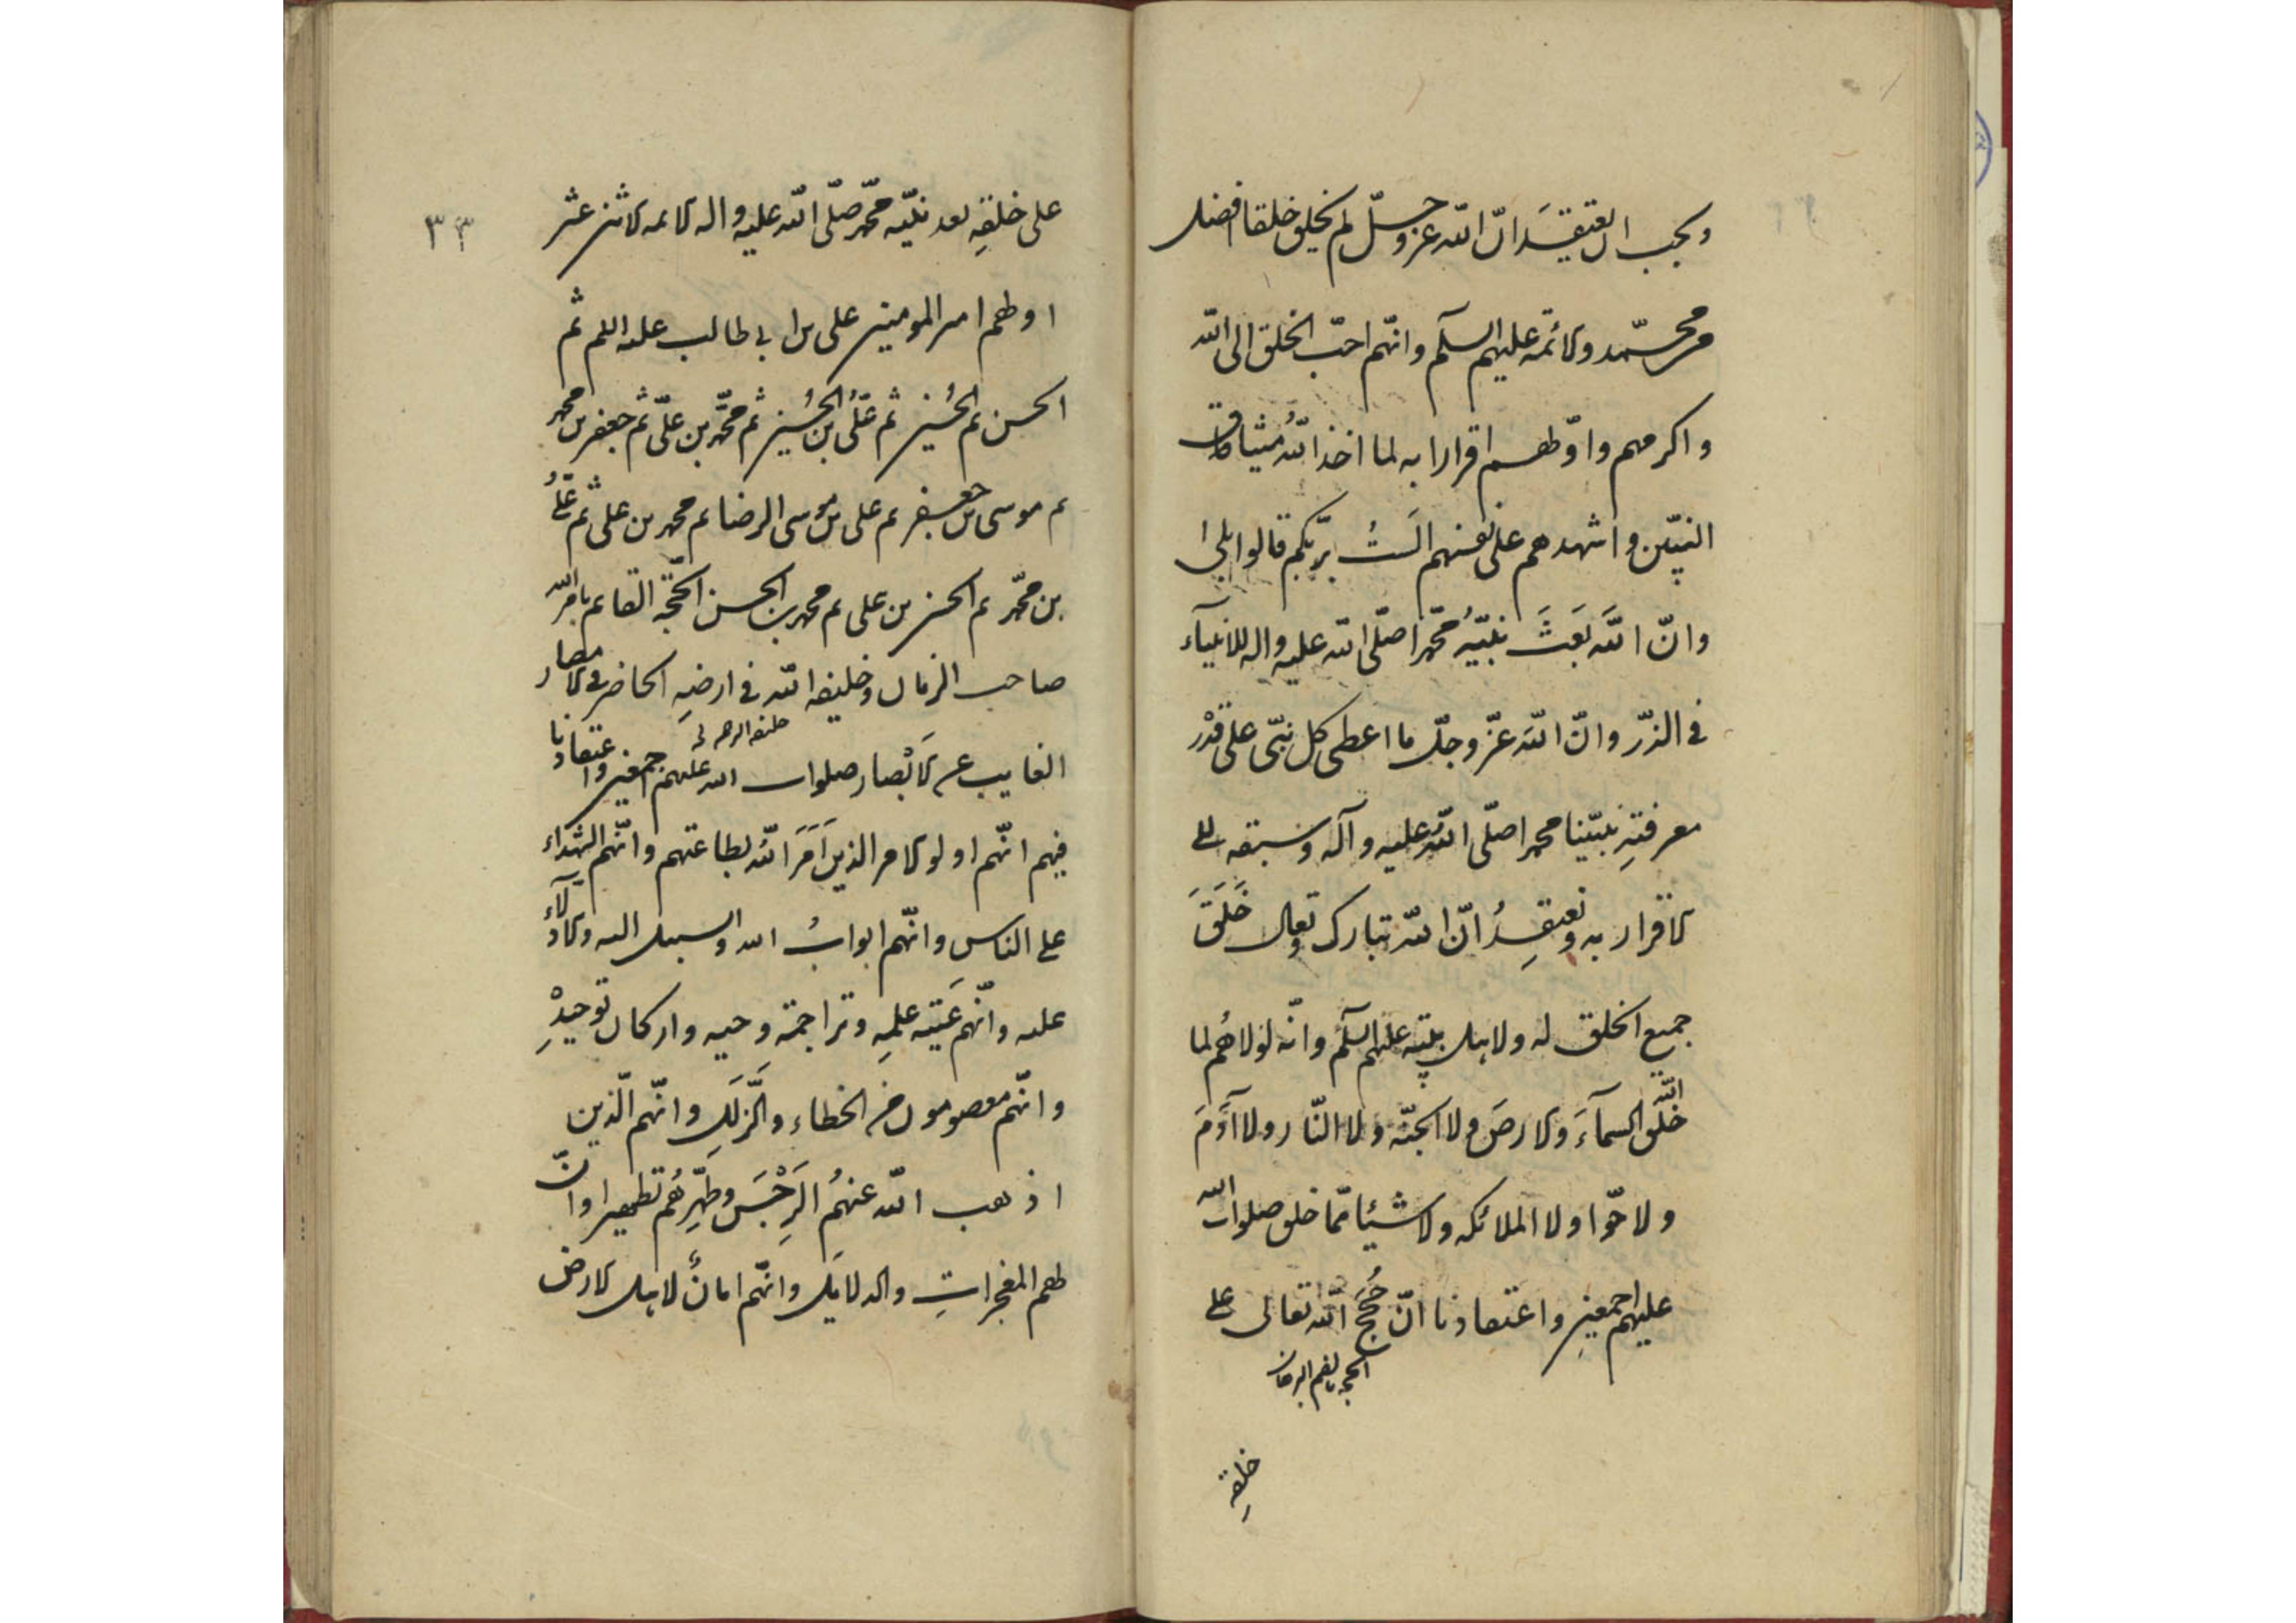 ويجب ان يعتقد انّ الله عز وجلّ لم يخلق خلقا افضل
من محمّد والائمّة عليهم السلم وانّهم احبّ الخلق الى الله
واكرمهم واوّلهم اقرارا به لما اخذ اللهُ ميثاق
النبيّين واشهدهم على انفسهم الَستُ بربّكم قالوا بلى
وانّ اللَّه بَعَثَ نبيّهُ محمّدا صلّى الله عليه واله للانبيآء
في الذرّ وانّ اللَّه عزّ وجلّ ما اعطى كل نبّى على قدْر
معرفتهِ نبيّنا محمدا صلّى اللَّه عليه وآله وسبقه الى
الاقرار به ونعتقِدُ انّ اللَّه تبارك وتعالى خَلَقَ
جميع الخلق له ولاهل بيته عليهم السلم وانّه لولاهُم لما
خلق اللّه السمآءَ والارضَ ولا الجنّه ولا النّار ولا آدَمَ
ولا حوّا ولا الملائكه ولا شيئا ممّا خلق صلوات اللّه
عليهم اجمعينِ واعتقادنا انّ حُجَجَ اللّه تعالى على
خلقهِ
٣٣
على خلقهِ بعد نبيّه محمّد صلّى اللّه عليه واله الائمه الاثنى عشر
اولهم امير المومنين على بن ابي طالب عليه السلم ثم
الحسن ثم الحُسين ثم علىُّ بن الحُسين ثم محمَّد بن علىّ ثم جعفر بن محمد
ثم موسى بن جعفر ثم على بن موسى الرضا ثم محمد بن على ثم علىُّ
بن محمّد ثم الحسن بن على ثم محمد بن الحسن الحجّة القائم بامر اللّه
صاحب الزمان وخليفه اللّه في ارضهِ الحاضر في الامصار
الغايب عن الابْصار صلوات اللّه عليهم اجمعين واعتقادنا
فيهم انّهم اولو الامر الذين اَمَرَ اللّه بطاعتهم وانّهم الشهَدَاء
على الناس وانّهم ابوابُ اللّه والسبيل اليه والادلّآء
عليه وانّهم عَيْبَه علمِهِ وتراجمَة وحيه واركان توحيدْهِ
وانّهم معصومون من الخطاء والزَّلَلِ وانّهم الّذين
اذهب اللّه عنهُم الرِجْسَ وطهّرهُم تطهيرا وانّ
لهم المعجزاتِ والدلايل وانّهم امانٌ لاهل الارض